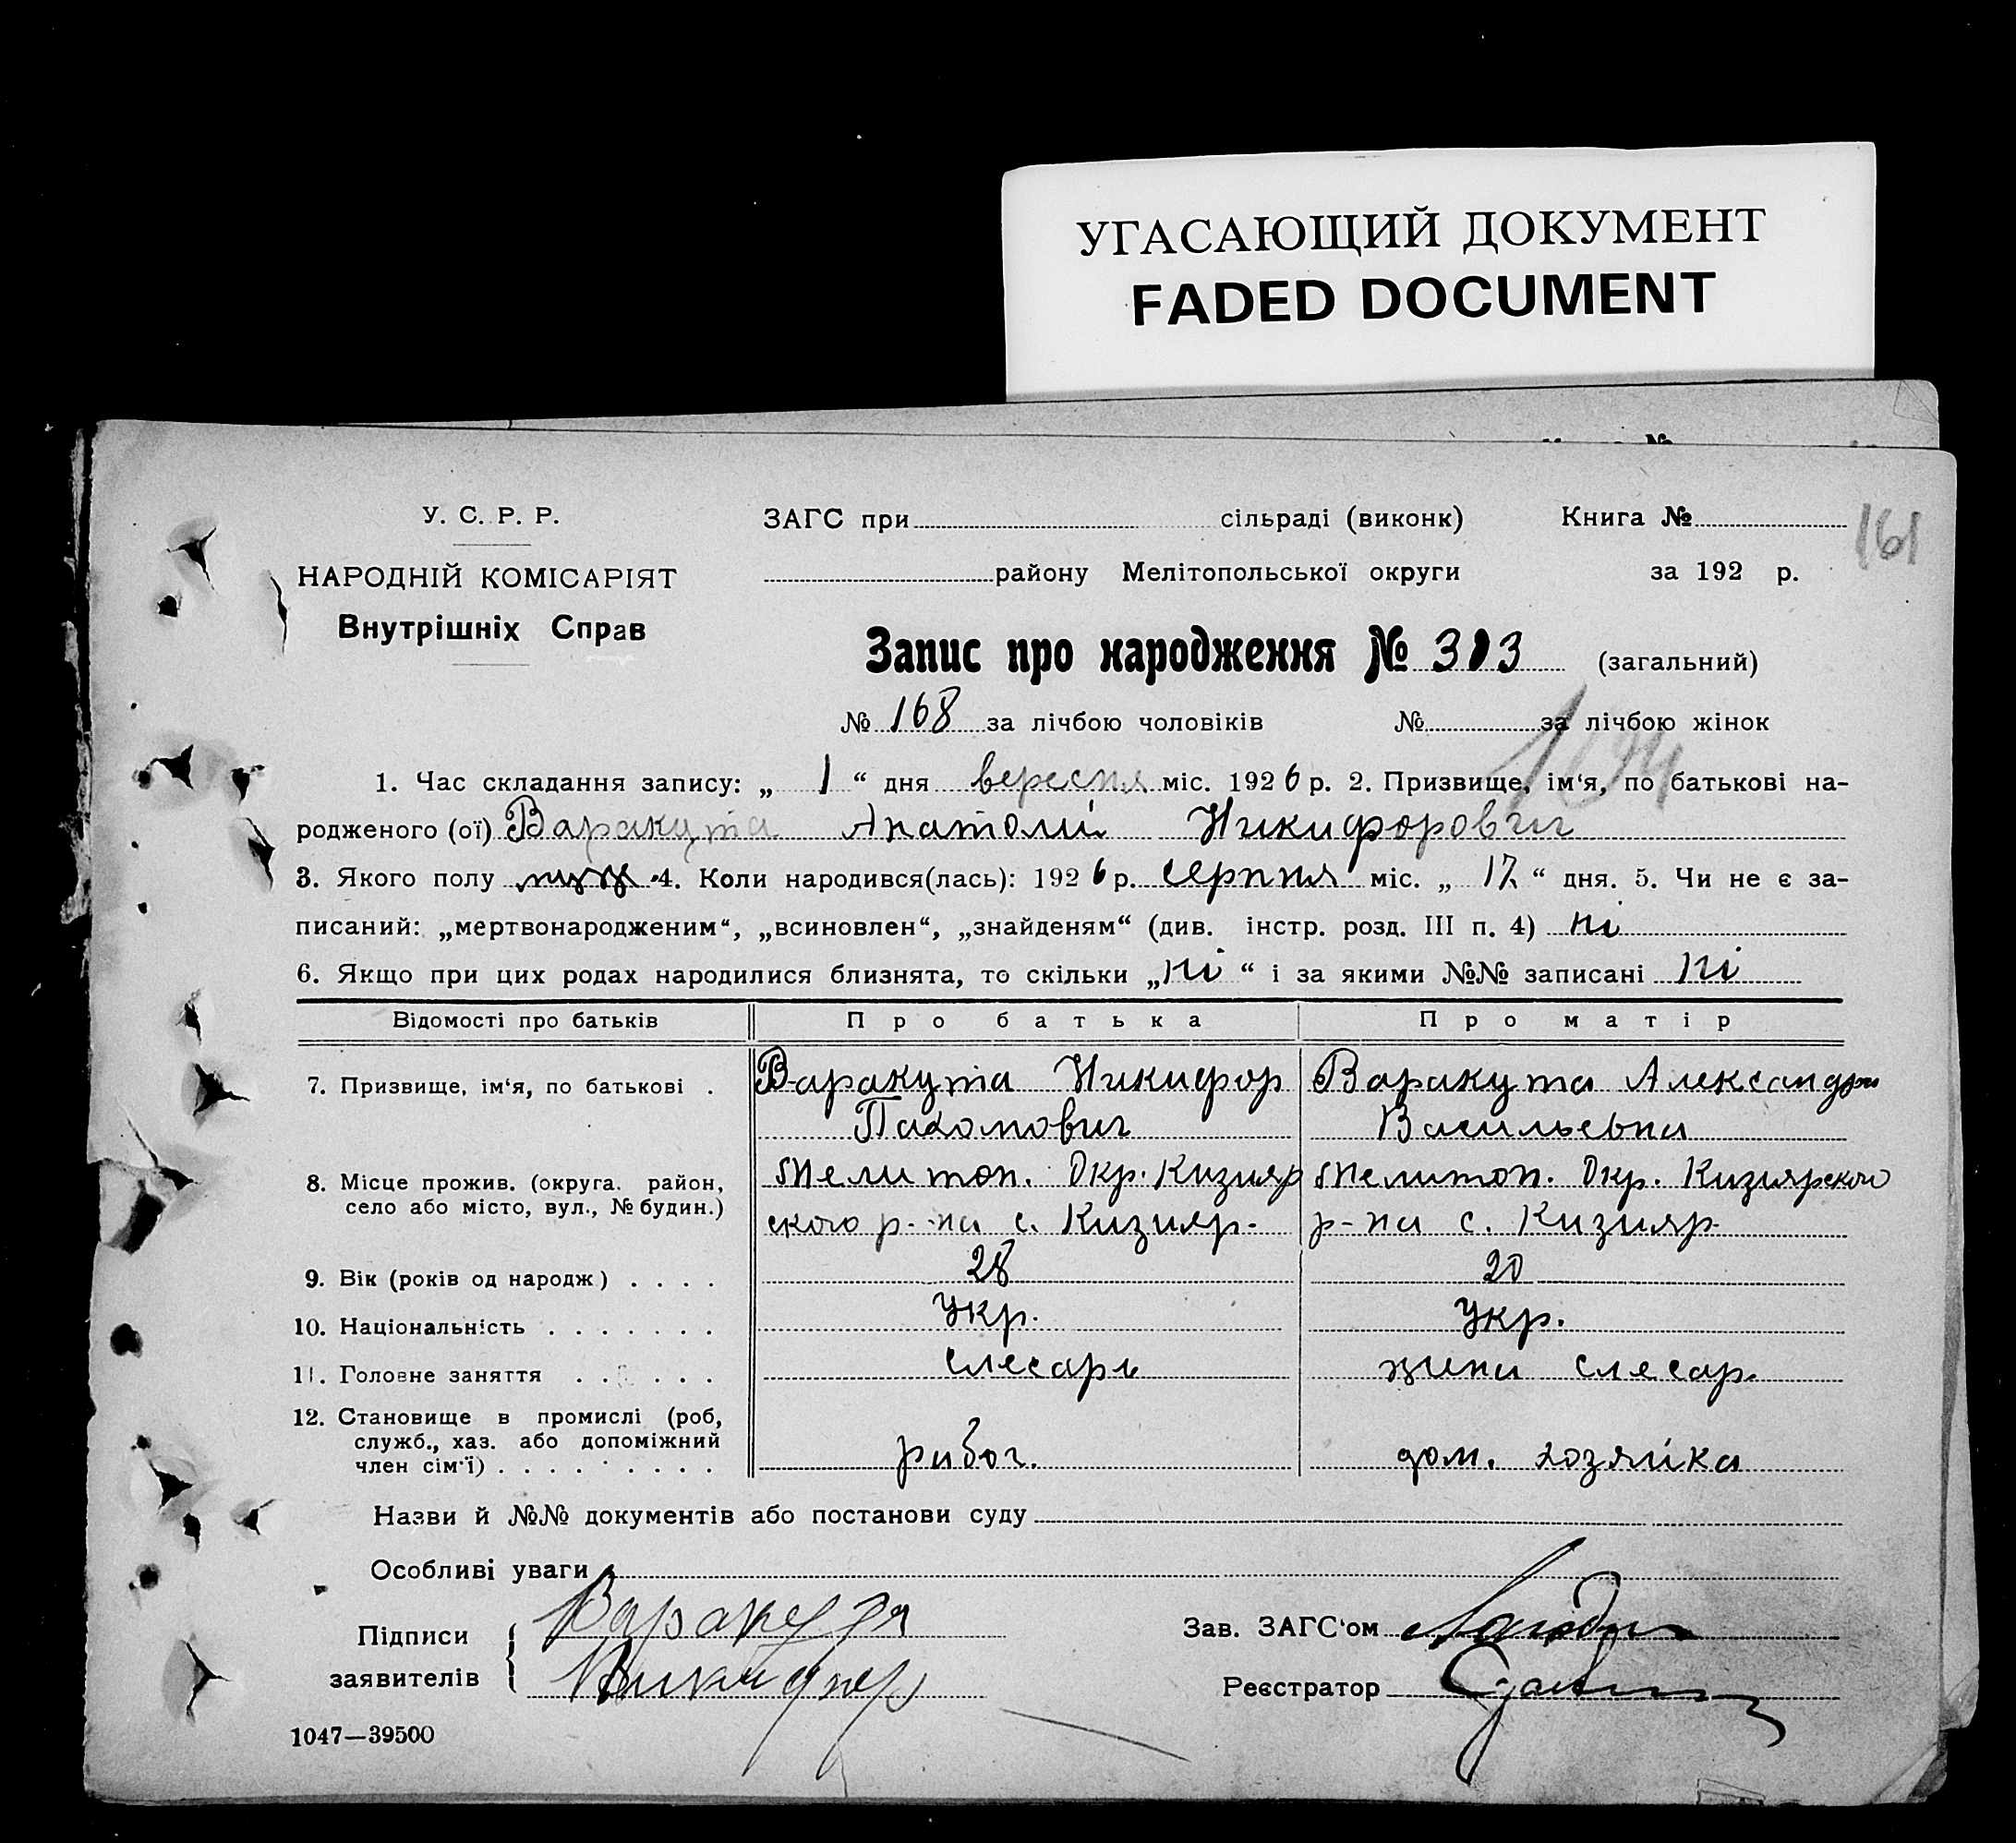 УГАСАЮЩИЙ ДОКУМЕНТ
FADED DOCUMENT
161
У. С. Р. Р.
НАРОДНІЙ КОМІСАРІЯТ
Внутрішніх Справ
ЗАГС при сільраді (виконк) Книга №
району Мелітопольської округи за 192 р.
Запис про народження № 313 (загальний)
№ 168 за лічбою чоловіків № за лічбою жінок
1. Час складання запису: „ 1 “ дня вересня міс. 1926 р. 2. Призвище, ім‘я, по батькові на-
родженого (ої) Варакута Анатолий Никифорович
3. Якого полу муж. 4. Коли народився(лась): 1926 р. серпня міс. „ 17 “ дня. 5. Чи не є за-
писаний: „мертвонародженим“, „всиновлен“, „знайденям“ (див. інстр. розд. III п. 4) ні
6. Якщо при цих родах народилися близнята, то скільки „ні“ і за якими №№ записані ні
Відомості про батьків Про батька Про матір
7. Призвище, ім‘я, по батькові . Варакута Никифор Варакута Александра
Пахомович Васильевна
8. Місце прожив. (округа. район,
село або місто, вул., № будин.)
Мелитоп. Окр. Кизияр Мелитоп. Окр. Кизиярского
ского р-на с. Кизияр. р-на с. Кизияр.
9. Вік (років од народж) . . . . 28 20
10. Національність . . . . . . . Укр. Укр.
11. Головне заняття . . . . . . слесарь жена слесар.
12. Становище в промислі (роб,
служб., хаз. або допоміжний
член сім‘ї) . . . . . . . . . рабоч. дом. хозяйка
Назви й №№ документів або постанови суду
Особливі уваги
Підписи Варакута Зав. ЗАГС‘ом
заявителів Никифор Реєстратор
1047—39500